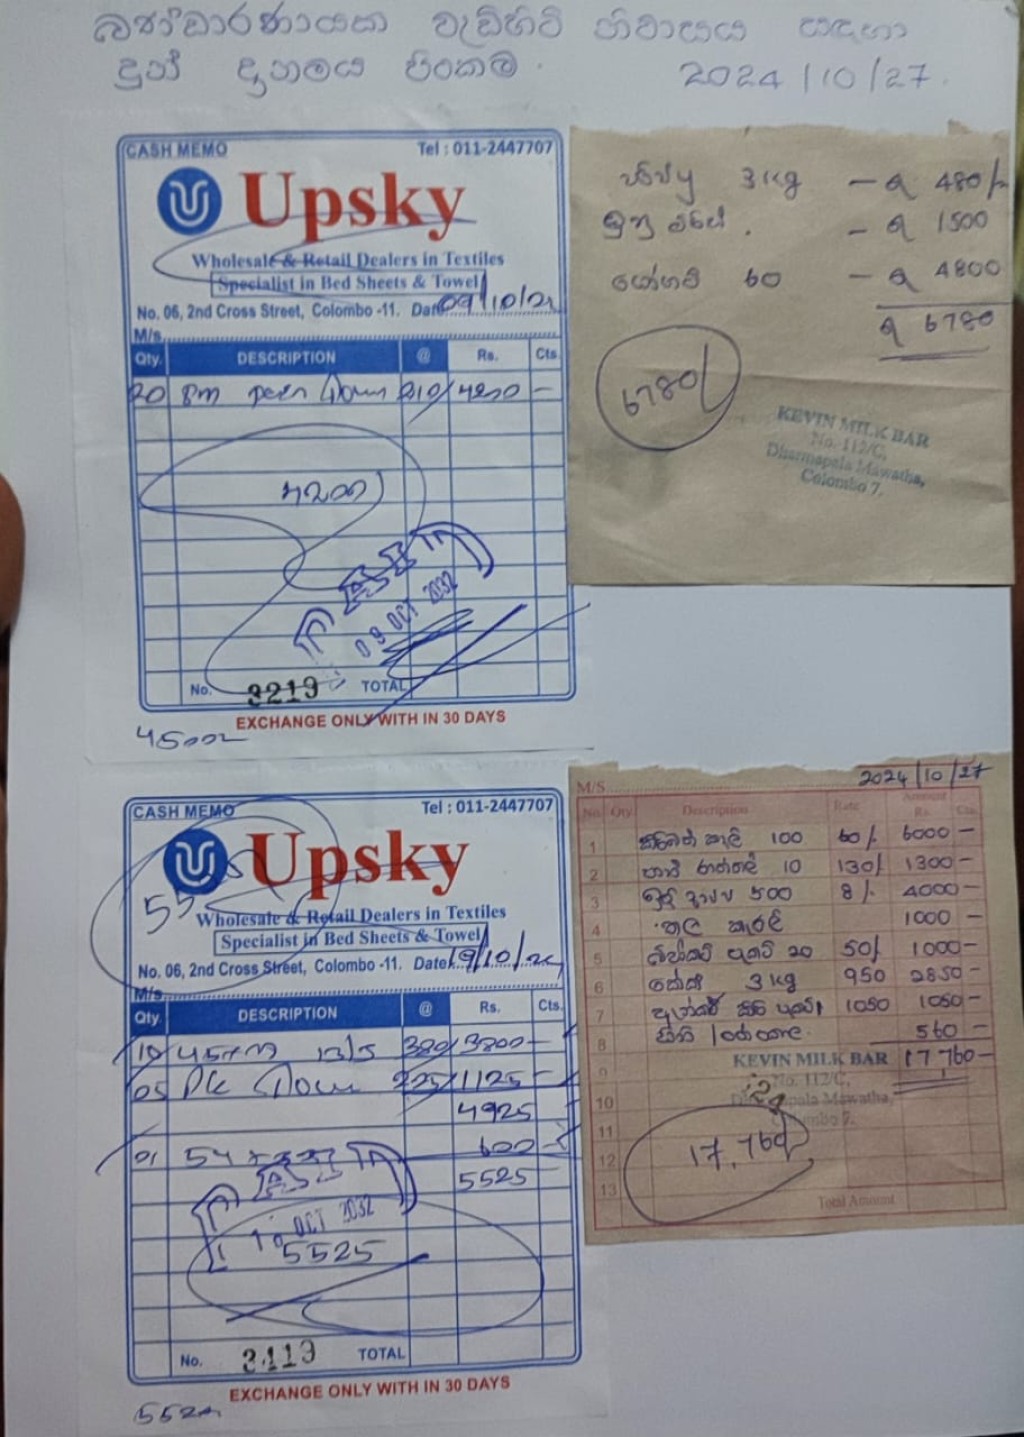 බණ්ඩාරණායක වැඩිහිටි නිවාසය සඳහා
දුන් දානමය පිංකම. 2024/10/27.
CASH MEMO Tel : 011-2447707
Upsky
Wholesale & Retail Dealers in Textiles
Specialist in Bed Sheets & Towel
No. 06, 2nd Cross Street, Colombo -11. Date 09/10/24
M/s
Qty. DESCRIPTION @ Rs. Cts.
20 210/ 4200 -
4200/
PAID
09 OCT 2032
No. 3219 TOTAL
EXCHANGE ONLY WITH IN 30 DAYS
පරිප්පු 3kg - රු 480/-
- රු 1500
යෝගට් 60 - රු 4800
රු 6780
6780/
KEVIN MILK BAR
No. 112/C,
Dharmapala Mawatha,
Colombo 7.
CASH MEMO Tel : 011-2447707
Upsky
55
Wholesale & Retail Dealers in Textiles
Specialist in Bed Sheets & Towel
No. 06, 2nd Cross Street, Colombo -11. Date 19/10/24
M/s
Qty. DESCRIPTION @ Rs. Cts.
10 380/ 3800 -
05 225/ 1125 -
4925
01 600 -
5525
PAID
OCT 2032
5525
No. 3419 TOTAL
EXCHANGE ONLY WITH IN 30 DAYS
M/S 2024/10/27
No Qty Description Rate Amount Rs. Cts.
1 කිරිබත් කෑලි 100 60/. 6000 -
2 පාන් රාත්තල් 10 130/ 1300 -
3 ඉඳි ආප්ප 500 8/. 4000 -
4 තල කැරලි 1000 -
5 20 50/ 1000 -
6 කේක් 3kg 950 2850 -
7 ඇන්කර් කිරි 1050 1050 -
8 සීනි 560 -
9 KEVIN MILK BAR 17 760 -
No. 112/C,
10 Dharmapala Mawatha,
Colombo 7.
11
12 17,760/
13
Total Amount